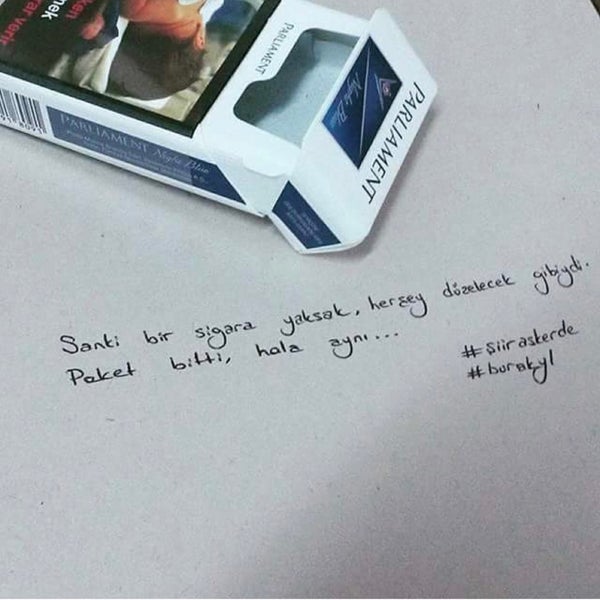 mek
ken
rar verir
PARLIAMENT
PARLIAMENT Night Blue
Night Blue
PARLIAMENT
Sanki bir sigara yaksak, herşey düzelecek gibiydi.
Paket bitti, hala aynı...
#şiiraskerde
#burakyl